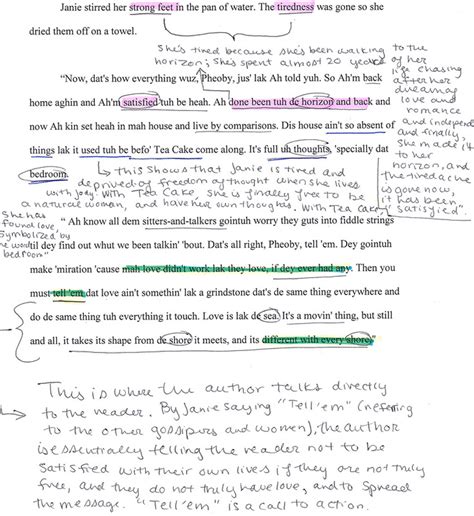 Janie stirred her strong feet in the pan of water. The tiredness was gone so she
dried them off on a towel.
She's tired because she's been walking to the
horizon; She's spent almost 20 years of her
life chasing
after her
dreams,
love and
romance
and independence
and finally,
She made it
to her
horizon, and
the tired ache
is gone now,
it has been
"Satisfied".
"Now, dat's how everything wuz, Pheoby, jus' lak Ah told yuh. So Ah'm back
home aghin and Ah'm satisfied tuh be heah. Ah done been tuh de horizon and back and
now Ah kin set heah in mah house and live by comparisons. Dis house ain't so absent of
things lak it used tuh be befo' Tea Cake come along. It's full uh thoughts, 'specially dat
bedroom.
this shows that Janie is tired and
deprived of freedom of thought when she lives
with Jody. With Tea Cake, she is finally free to be
a natural woman, and have her own thoughts. With Tea Cake,
She has
found love,
Symbolized by
the word
"bedroom"
"Ah know all dem sitters-and-talkers gointuh worry they guts into fiddle strings
till dey find out what we been talkin' 'bout. Dat's all right, Pheoby, tell 'em. Dey gointuh
make 'miration 'cause mah love didn't work lak they love, if dey ever had any. Then you
must tell 'em dat love ain't somethin' lak a grindstone dat's de same thing everywhere and
do de same thing tuh everything it touch. Love is lak de sea. It's a movin' thing, but still
and all, it takes its shape from de shore it meets, and its different with every shore."
This is where the author talks directly
to the reader. By Janie saying "Tell'em" (referring
to the other gossipers and women), the author
is essentially telling the reader not to be
satisfied with their own lives if they are not truly
free, and they do not truly have love, and to spread
the message. "Tell'em" is a call to action.